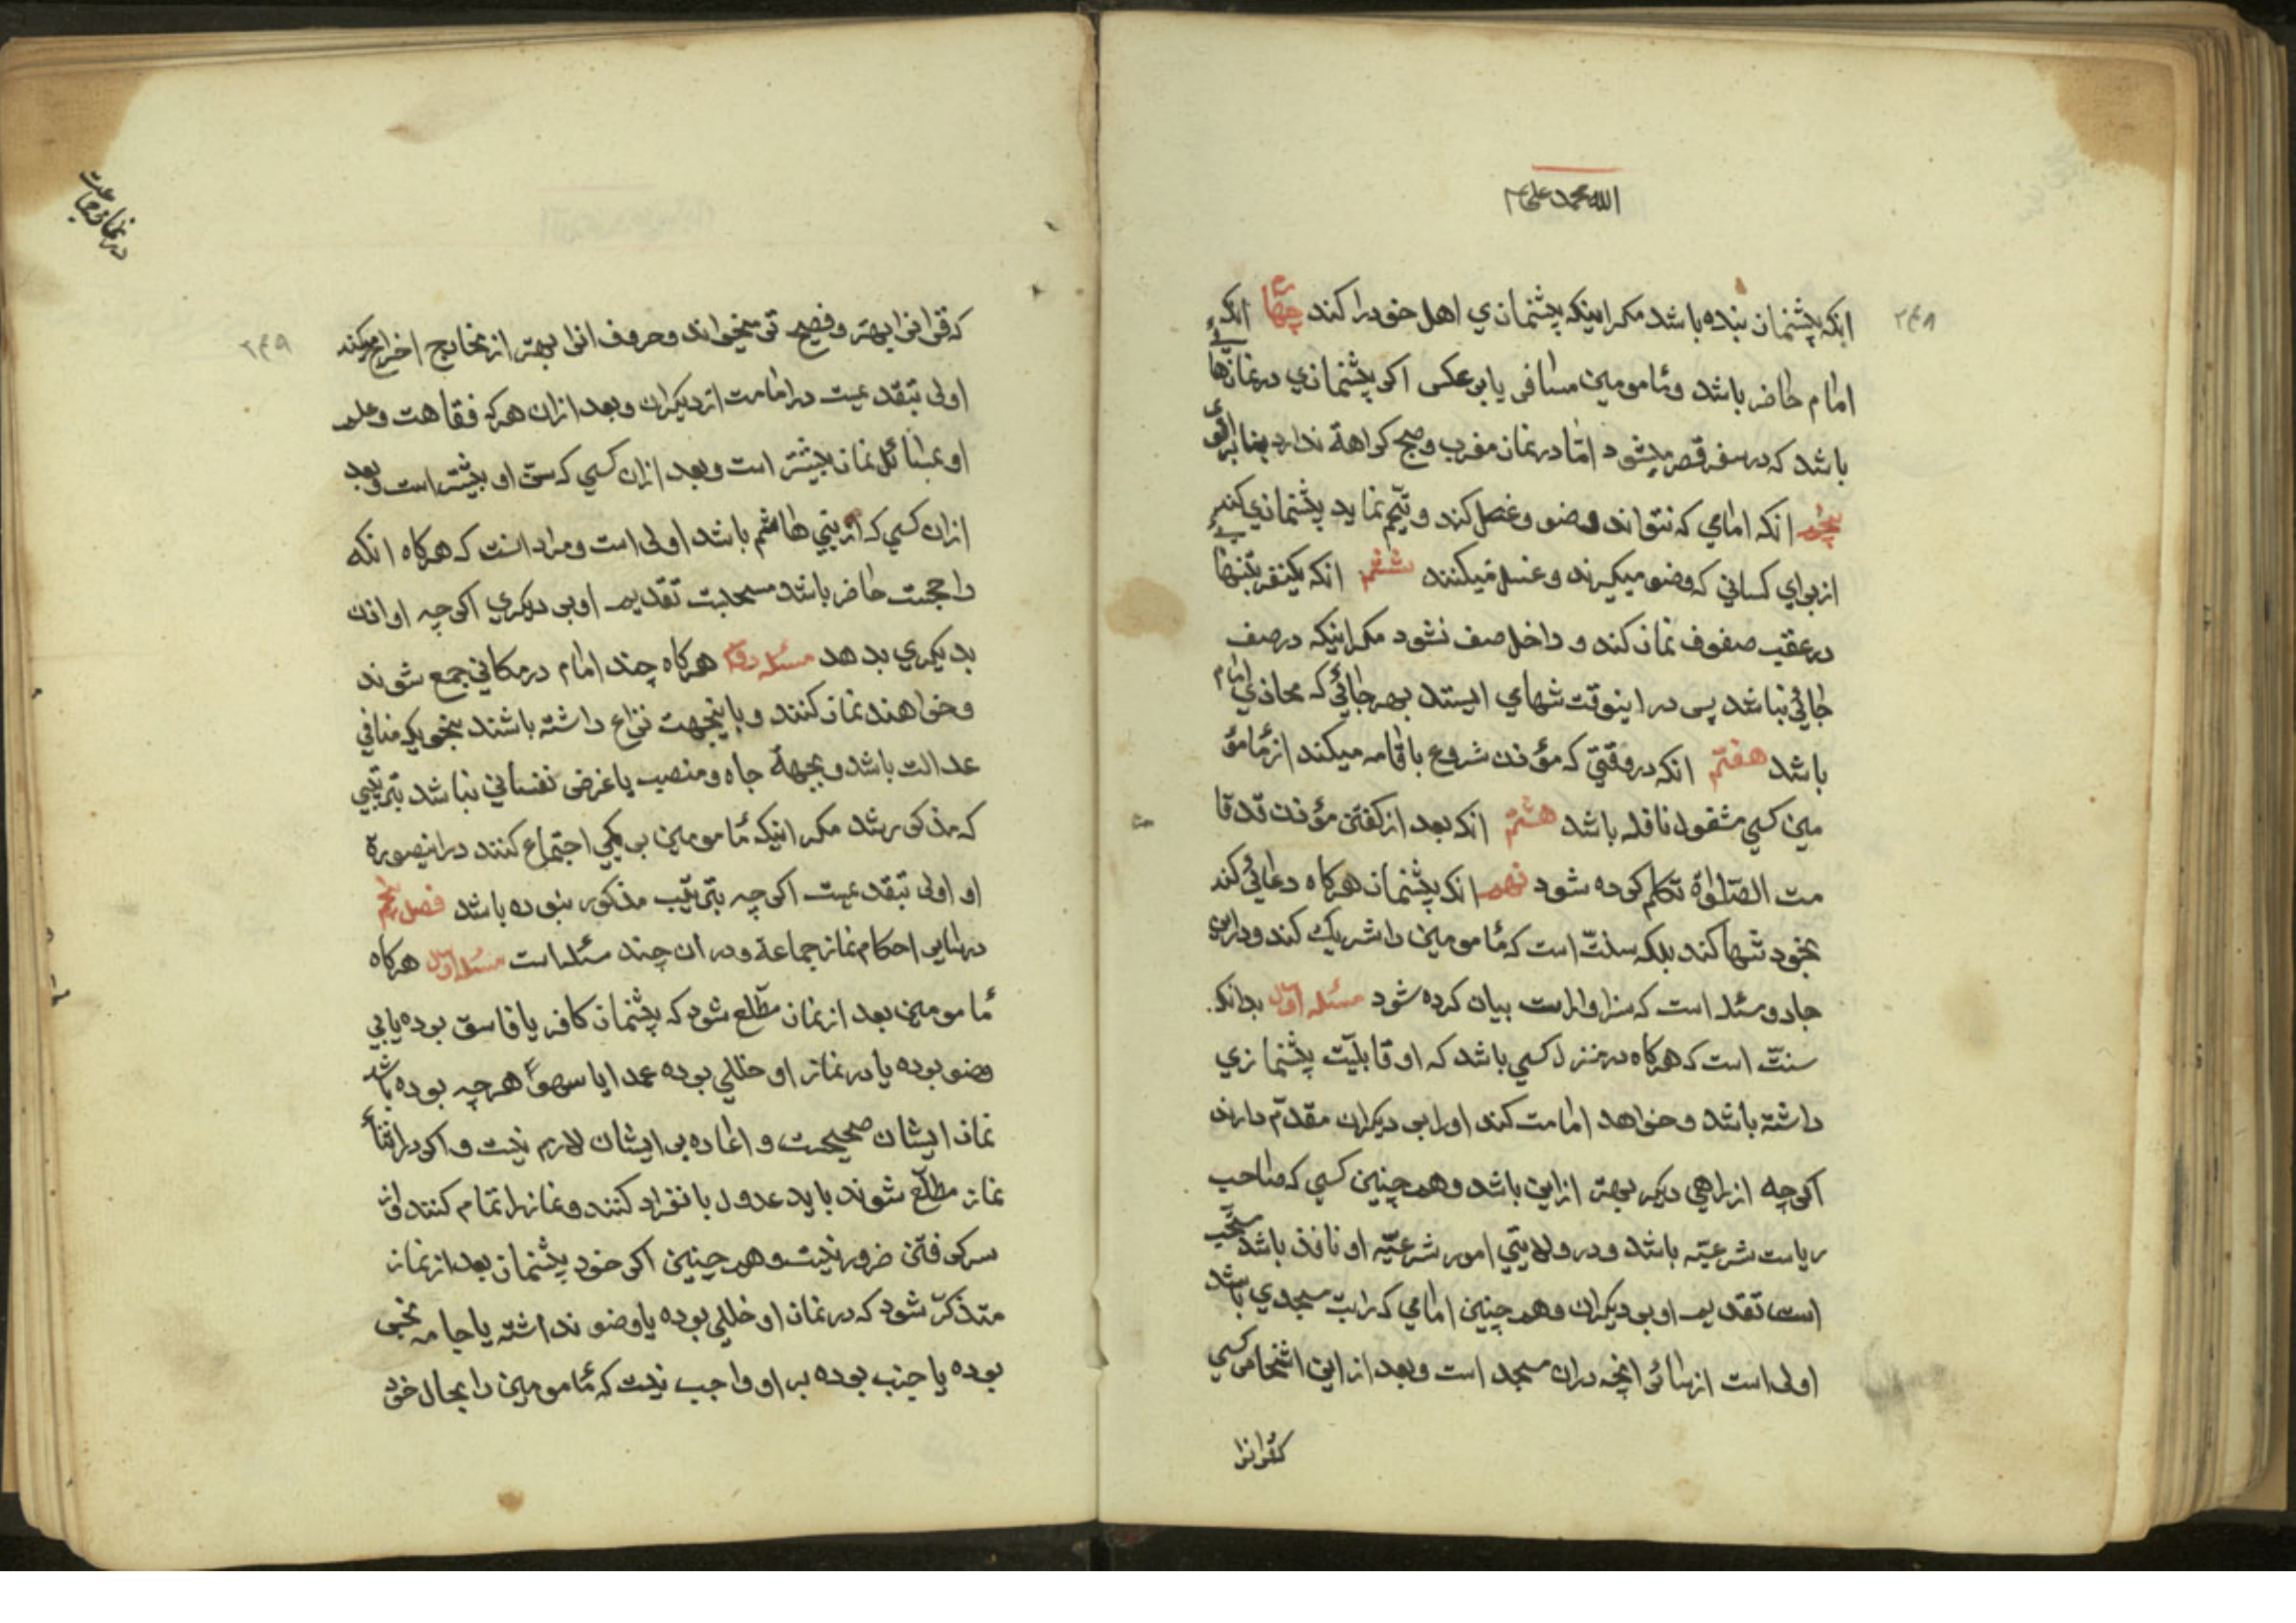 الله محمد علی
۲۴۸
انکه پیشنماز بنده باشد مکر اینکه پیشنمازي اهل خود را کند چهارم انکه
امام حاضر باشد و مأمومین مسافر یا برعکس اکر پیشنمازي در نمازها
باشد که در سفر قصر میشود امّا در نماز مغرب و صبح کراهة ندارد بنا بر اقوی
پنجم انکه امامي که نتواند وضو و غصل کند و تیمّم نماید پیشنمازي کند
از برای کساني که وضو میکیرند و غسل میکنند ششم انکه یکنفر بتنهائي
در عقب صفوف نماز کند و داخل صف نشود مکر اینکه در صف
جائي نباشد پس در اینوقت تنهاي ایستد بهر جائي که محاذي امام
باشد هفتم انکه در وقتي که مؤذن شروع باقامه میکند از مأمو
مین کسي مشغول نافله باشد هشتم انکه بعد از کفتن مؤذن قد قا
مت الصّلوة تکلم کرده شود نهم انکه پیشنماز هرکاه دعائي کند
بخود تنها کند بلکه سنّت است که مأمومین را شریک کند و در این
جا دو مسئله است که سزاوار است بیان کرده شود مسئله اول بدانکه
سنّت است که هرکاه در منزل کسي باشد که او قابلیّت پیشنمازي
داشته باشد و خواهد امامت کند او را بر دیکران مقدّم دارند
اکرچه از راهي دیکر بهتر از این باشد و همچنین کسي که صاحب
ریاست شرعیّه باشد و در ولایتي امور شرعیّه او نافذ باشد مستحّب
است تقدیم او بر دیکران و همچنین امامي که راتب مسجدي باشد
اولی است از سائر ائمّه در ان مسجد است و بعد از این اشخاص کسي
که قرانرا
در نماز جماعت
۲۴۹
که قرانرا بهتر و فصیح تر میخواند و حروف انرا بهتر از مخارج اخراج میکند
اولی بتقدمیست در امامت از دیکران و بعد از ان هرکه فقاهت و علم
او بمسائل نماز بیشتر است و بعد از ان کسي که سنّ او بیشتر است و بعد
از ان کسي که از بني هاشم باشد اولی است و مراد انست که هرکاه انکه
راجحست حاضر باشد مستحبست تقدیم او بر دیکري اکرچه او اذن
بدیکري بدهد مسئله دوّم هرکاه چند امام در مکاني جمع شوند
و خواهند نماز کنند و باینجهت نزاع داشته باشند بنحویکه منافي
عدالت باشد و بجهة جاه و منصب یا غرض نفساني نباشد بترتیبي
که مذکور شد مکر اینکه مأمومین بر یکي اجتماع کنند در اینصورة
او اولی بتقدمیست اکرچه بترتیب مذکور نبوده باشد فصل پنجم
در بیان احکام نماز جماعة و در ان چند مسئله است مسئله اول هرکاه
مأمومین بعد از نماز مطّلع شود که پیشنماز کافر یا فاسق بوده یا بي
وضو بوده یا در نماز او خللي بوده عمدا یا سهوًا هرچه بوده باشد
نماز ایشان صحیحست و اعاده بر ایشان لازم نیست و اکر در اثناء
نماز مطّلع شوند باید عدول بانفراد کنند و نماز را تمام کنند و از
سر کرفتن ضرور نیست و همچنین اکر خود پیشنماز بعد از نماز
متذکّر شود که در نماز او خللي بوده یا وضو نداشته یا جامه نجس
بوده یا جنب بوده بر او واجب نیست که مأمومین را بحال خود